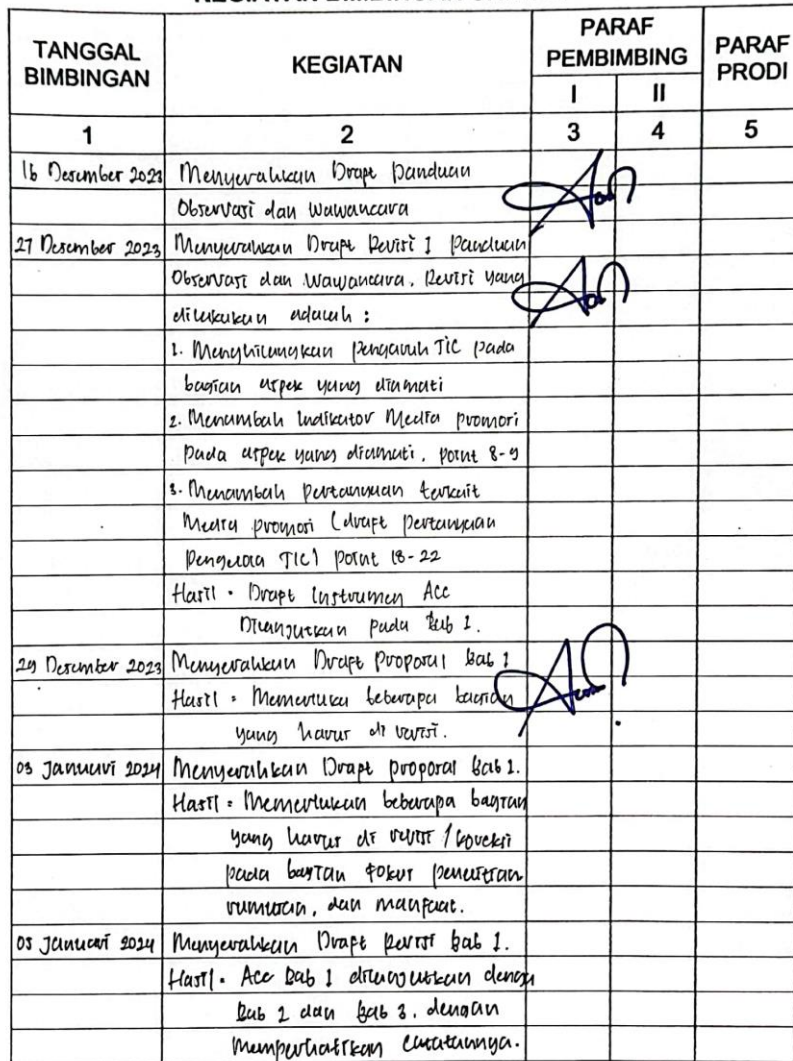 TANGGAL BIMBINGAN KEGIATAN PARAF PEMBIMBING PARAF PRODI
I II
1 2 3 4 5
16 Desember 2023 Menyerahkan Draft Panduan
Observasi dan Wawancara
27 Desember 2023 Menyerahkan Draft Revisi 1 Panduan
Observasi dan Wawancara. Revisi yang
dilakukan adalah :
1. Menghilangkan pengaruh TIC pada
bagian aspek yang diamati
2. Menambah Indikator Media promosi
pada aspek yang diamati, point 8-9
3. Menambah pertanyaan terkait
Media promosi (draft pertanyaan
Pengelola TIC) point 18-22
Hasil : Draft Instrumen Acc
Dilanjutkan pada Bab 1.
29 Desember 2023 Menyerahkan Draft Proposal Bab 1
Hasil : Memerluka beberapa bagian
yang harus di revisi.
03 Januari 2024 Menyerahkan Draft proposal Bab 1.
Hasil : Memerlukan beberapa bagian
yang harus di revisi / koreksi
pada bagian fokus penelitian
rumusan, dan manfaat.
05 Januari 2024 Menyerahkan Draft Revisi Bab 1.
Hasil : Acc Bab 1 dilanjutkan denga
Bab 2 dan Bab 3. dengan
Memperhatikan catatannya.